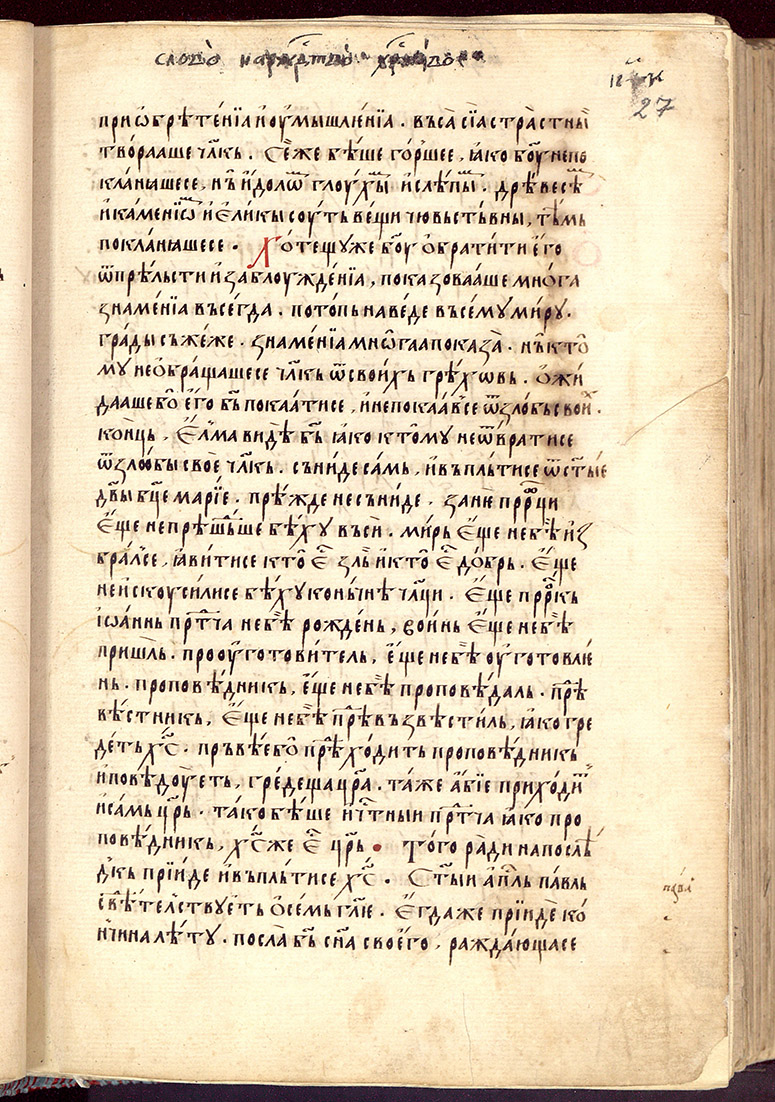 слово на рж҃ство хр҃во
27
приѡбрѣте́нїа и оу҆мышлѥ́нїа . въса сїа стра̀стны
тво́раше чл҃къ . Се́же бѣше го́ршее , ꙗко бо҃у не по
кла́нꙗшесе , нъ и҆́долѡⷨ глоухы́ⷨ и слѣпы́ⷨ . дрѣ́весѣⷨ
и ка́менїѡⷨ и є҆ли́кы соуть ве́щи чювьстъ́вны , тѣ́мь
покла́нꙗшесе . Хо́тещуже бо҃у ѡ҆брати́ти є҆го
ѿ прѣ́льсти и заблоужде́нїа , показоваше мно́га
знаме́нїа въсегда . пото́пь наве́де въсе́му ми́ру .
гра́ды съже́же . знаме́нїа мнѡ́гаа показа̀ . нъ к то
му не ѡ҆бра́щашесе чл҃къ ѿ свои́хъ грѣхѡвь . ѡ҆жи
дааше бо є҆го б҃ъ покаа́тисе , и не покаавсе ѿ злобъ свои́ⷯ .
коньць , Є҆лма видѣ̀ б҃ъ ꙗко к то́му не ѿвратисе
ѿ злобы свое́ чл҃къ . съни́де са́мь , и въплъти́се ѿ ст҃ые
дв҃ы бц҃е марїе . прѣжде не съни́де . занѥ́ прⷪ҇роци
є҆ще не прѣшьше бѣ́ху въси . ми́рь є҆ще не бѣ̀ и҆з
бралсе , ꙗви́тисе кто̀ є҆ⷭ҇ зль и кто̀ є҆ⷭ҇ до́брь . є҆ще
не и҆скоуси́лисе бѣ́ху конь́чнѣ чл҃ци . є҆ще прⷪ҇ркъ
і҆ѡа́ннь прⷣтча не бѣ̀ рожде́нь , вои́нь є҆ще не бѣ̀
пришьль . проу҆готови́тель , є҆ще не бѣ̀ оу҆готовлѥ
нь . проповѣ́дникъ , є҆ще не бѣ̀ проповѣ́даль . прⷣѣ
вѣ́стникъ , є҆ще не бѣ̀ прⷣѣвъзвѣсти́ль , ꙗко гре
де́ть хⷭ҇ . пръвѣе бо прⷣѣхо́дить проповѣ́дникъ
и повѣ́доуеть , гре́деща цр҃а . та́же а҆́бїе прихо́диⷮ
и са́мь цр҃ь . та́ко бѣше и чⷭ҇тныи прⷣтча ꙗко про
повѣ́дникъ , хⷭ҇же є҆ⷭ҇ цр҃ь . То́го ра́ди на послѣ
докъ прїи́де и въплъти́се хⷭ҇ . Ст҃ыи а҆пⷭ҇ль па́вль
свѣ́тельствуеть ѡ҆ семь гл҃ѥ . Є҆гда же прїи́де ко
нчина лѣту . посла̀ б҃ъ сн҃а своего̀ , ражда́ющасе
павⷧ